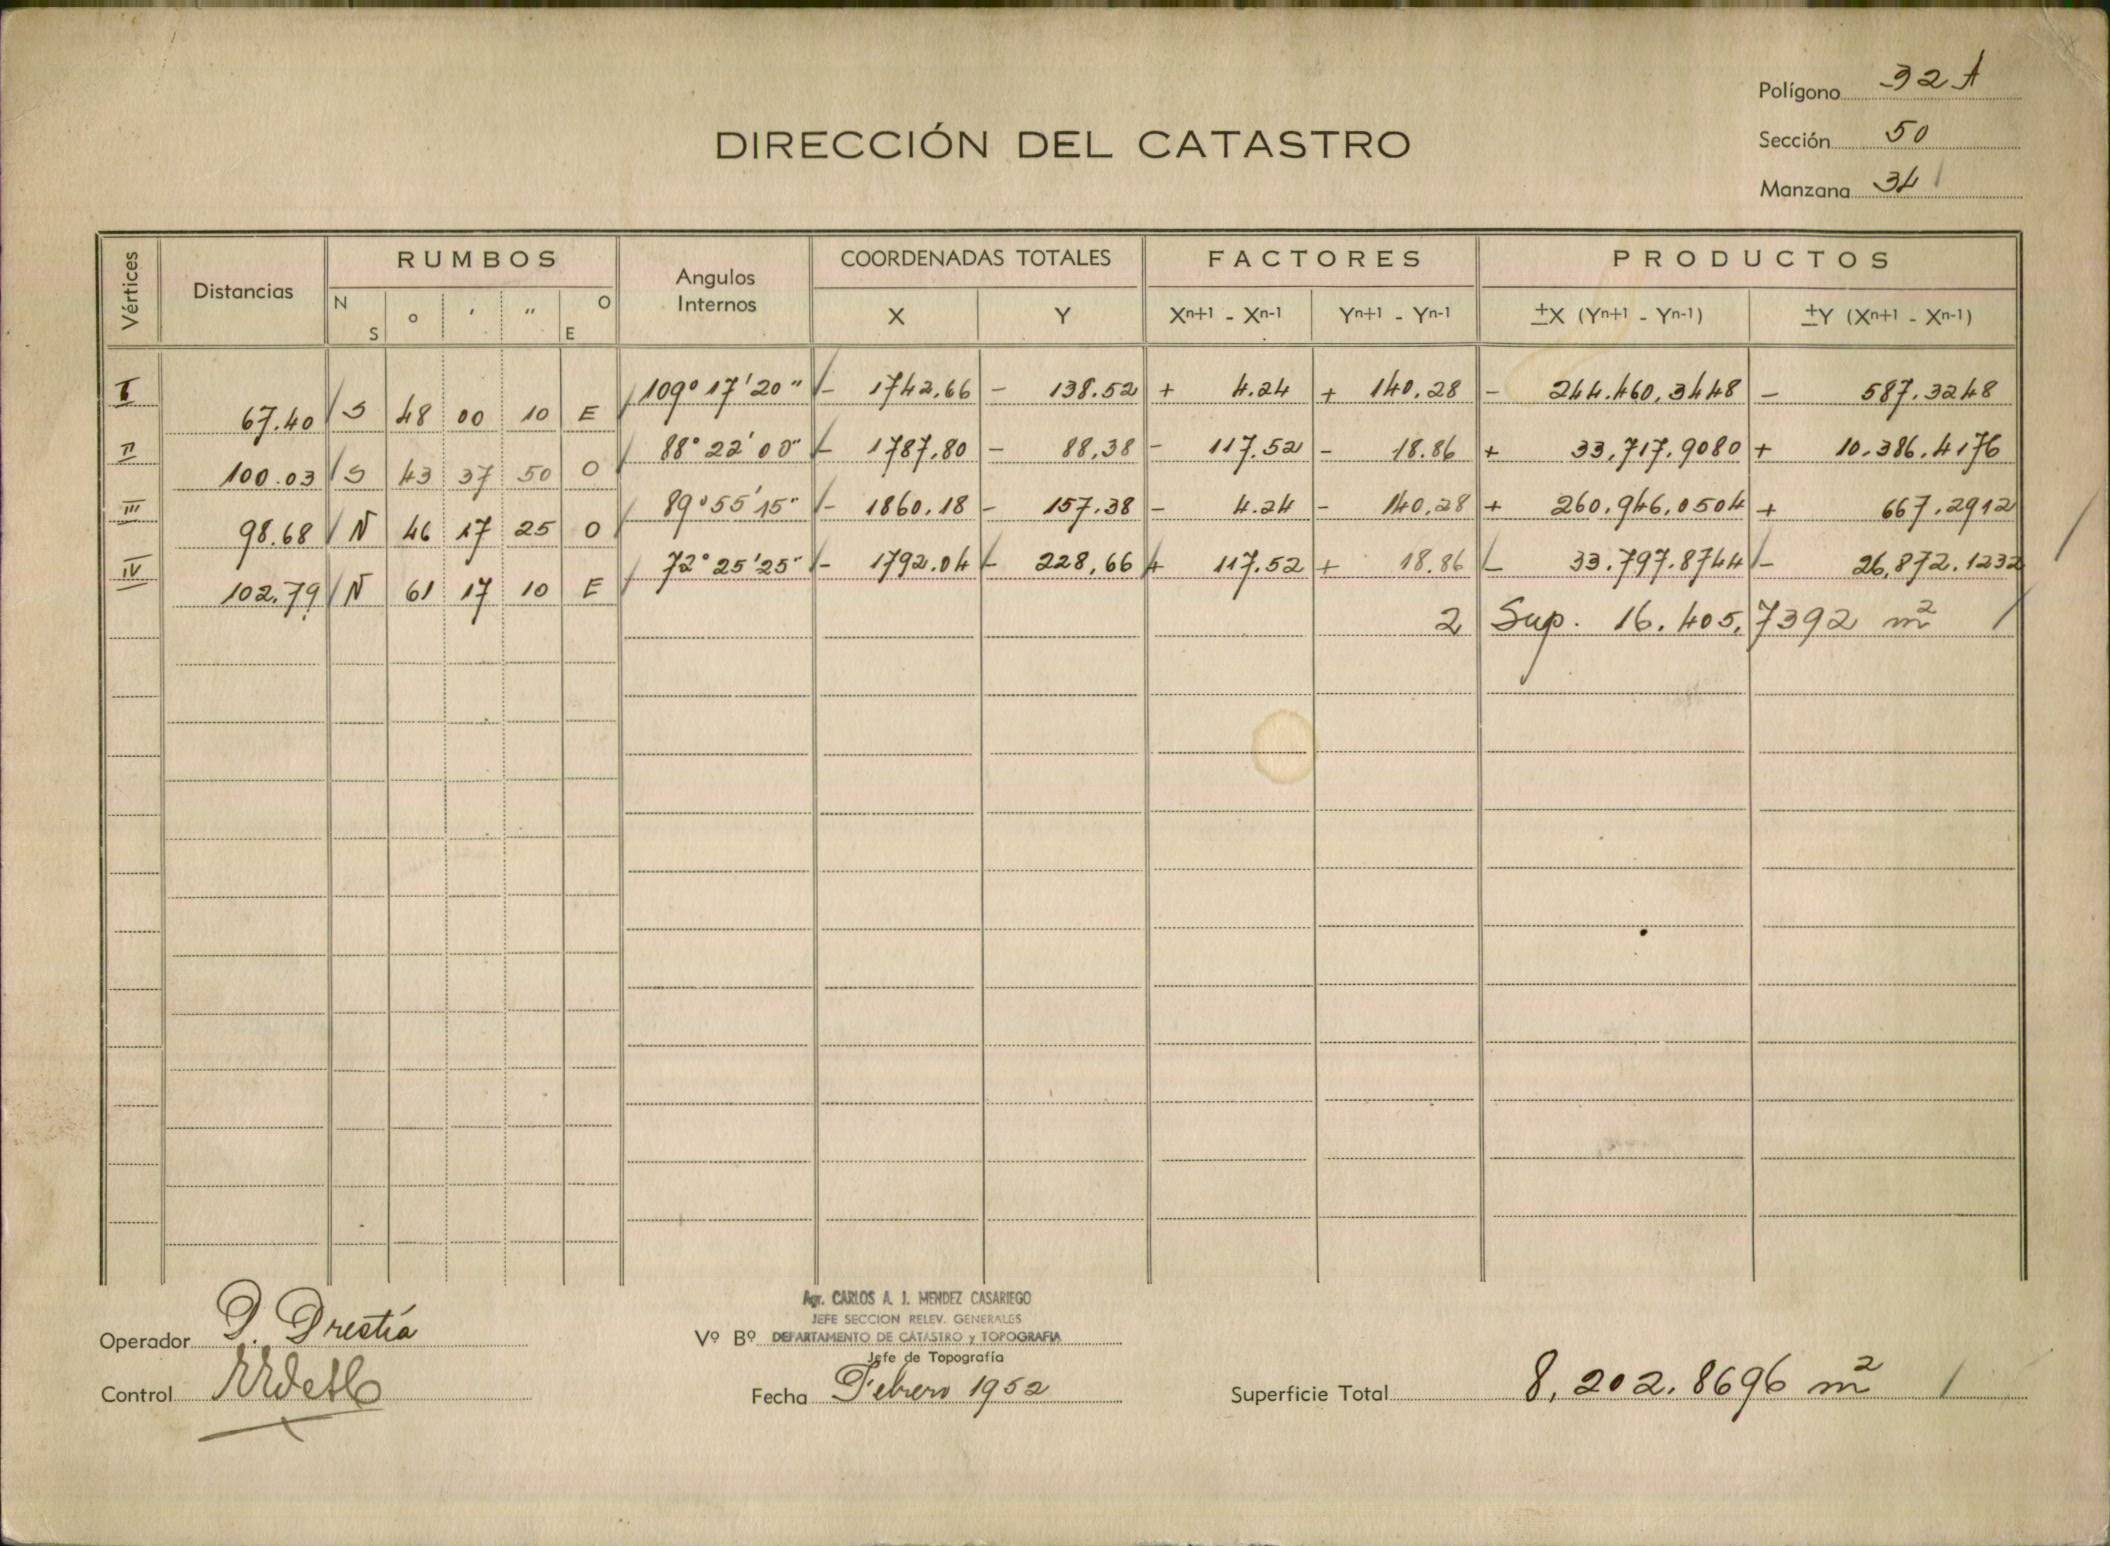 Polígono 32 A
DIRECCIÓN DEL CATASTRO
Sección 50
Manzana 34
Vértices Distancias RUMBOS Angulos Internos COORDENADAS TOTALES FACTORES PRODUCTOS
N S ° ' " O E X Y Xn+1 - Xn-1 Yn+1 - Yn-1 ±X (Yn+1 - Yn-1) ±Y (Xn+1 - Xn-1)
I 109° 17' 20" - 1742.66 - 138.52 + 4.24 + 140.28 - 244.460,3448 - 587.3248
67.40 S 48 00 10 E
II 88° 22' 00" - 1787,80 - 88,38 - 117.52 - 18.86 + 33,717.9080 + 10.386.4176
100.03 S 43 37 50 O
III 89° 55' 15" - 1860.18 - 157.38 - 4.24 - 140.28 + 260.946,0504 + 667.2912
98.68 N 46 17 25 O
IV 72° 25' 25" - 1792.04 - 228,66 + 117.52 + 18.86 - 33.797.8744 - 26,872.1232
102.79 N 61 17 10 E
2 Sup. 16.405,7392 m²
Agr. CARLOS A. J. MENDEZ CASARIEGO
JEFE SECCION RELEV. GENERALES
Operador Vº Bº DEPARTAMENTO DE CATASTRO y TOPOGRAFIA
Jefe de Topografía
Control Fecha Febrero 1952 Superficie Total 8,202.8696 m²